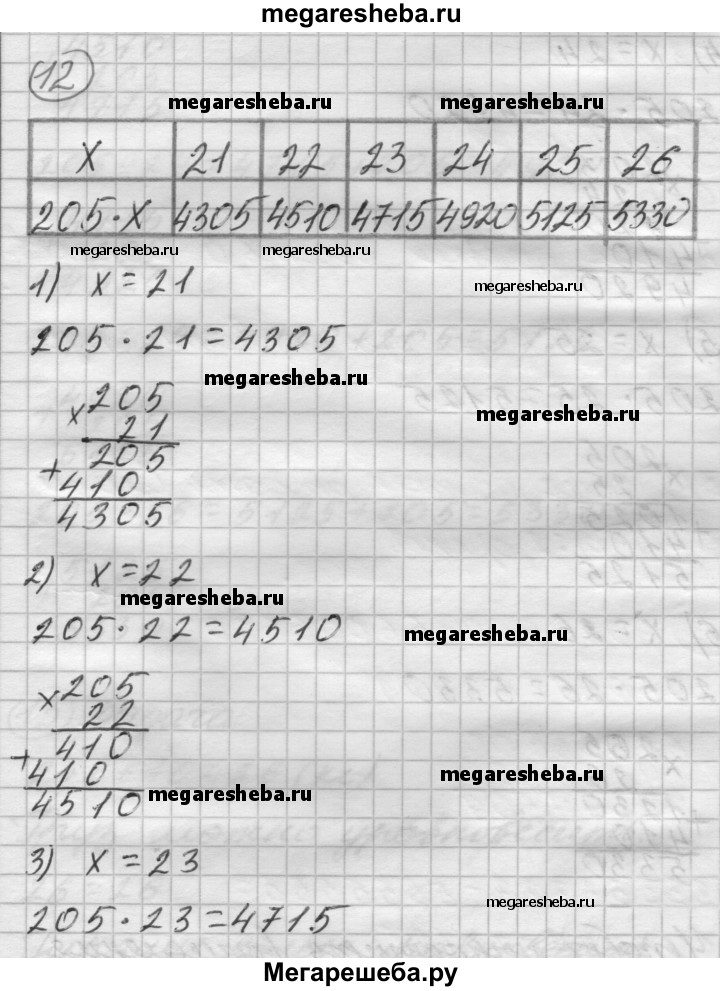 megaresheba.ru
12
megaresheba.ru megaresheba.ru
x 21 22 23 24 25 26
205·x 4305 4510 4715 4920 5125 5330
megaresheba.ru megaresheba.ru
1) x=21 megaresheba.ru
205·21=4305
megaresheba.ru
x 205
megaresheba.ru
21
205
+
410
4305
2) x=22
megaresheba.ru
205·22=4510 megaresheba.ru
x 205
22
410
+
410 megaresheba.ru
4510 megaresheba.ru
3) x=23
megaresheba.ru
205·23=4715
Мегарешеба.ру